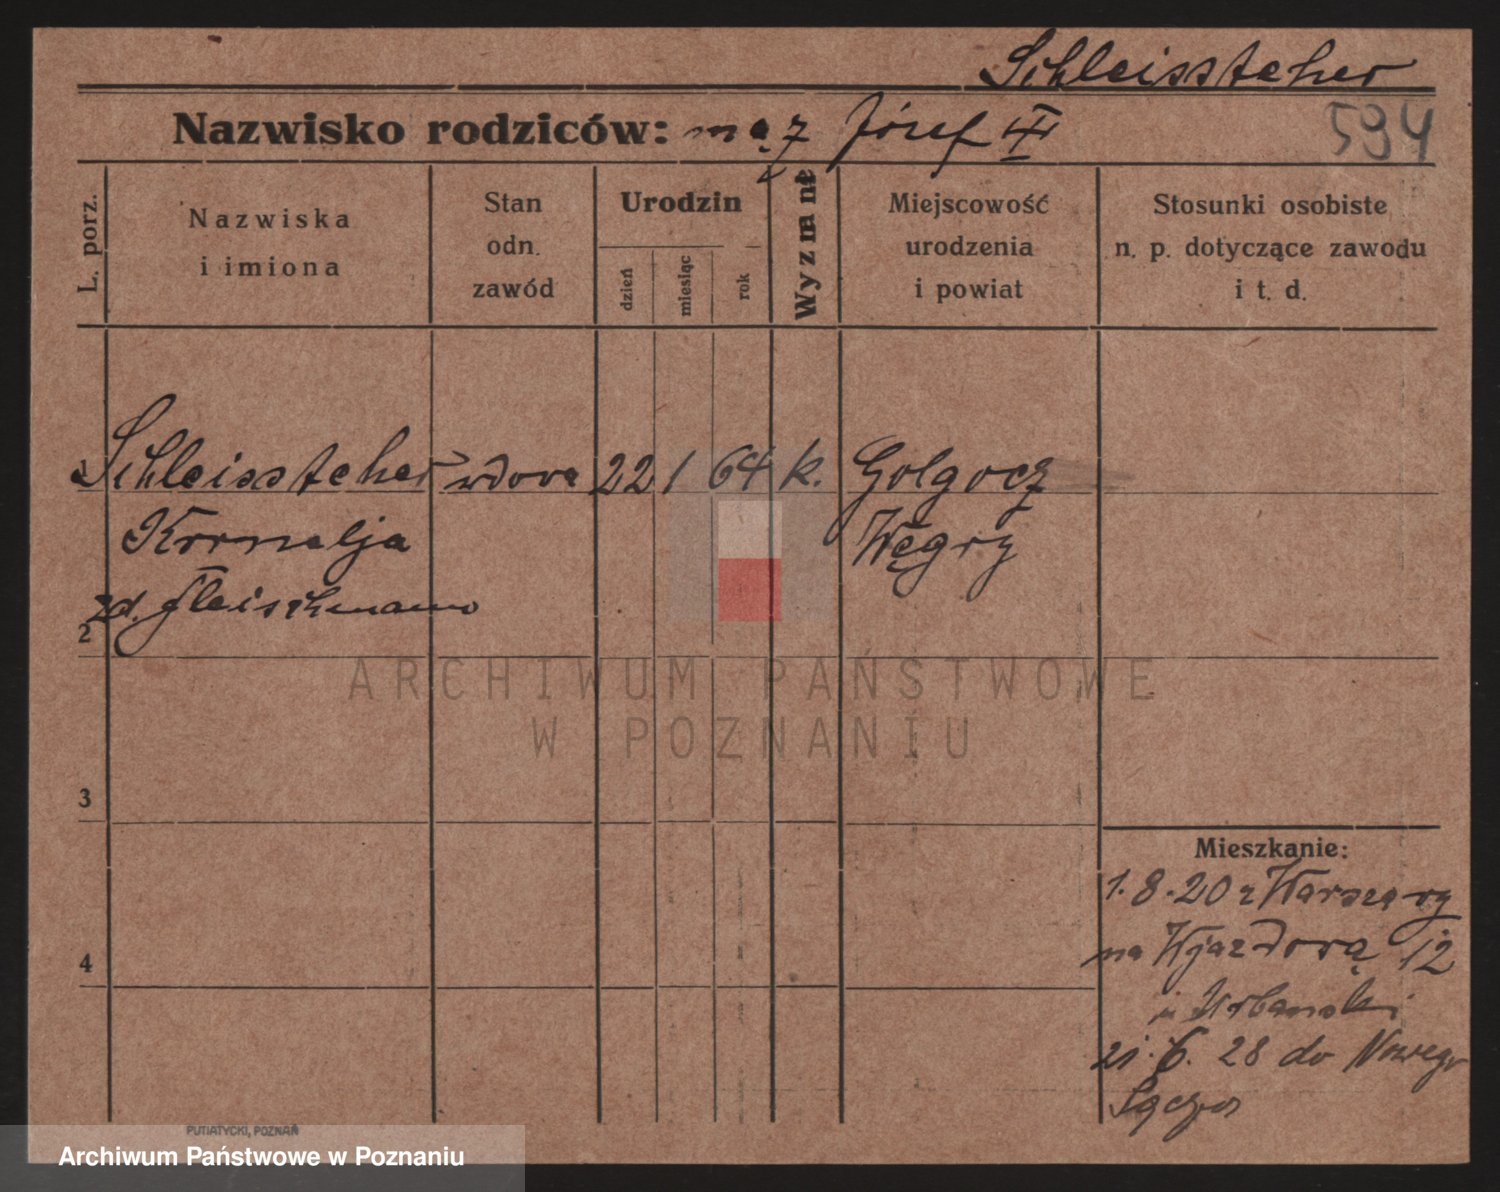 Schleisstcher
Nazwisko rodziców: mąż Józef
594
L. porz.
Nazwiska
i imiona
Stan
odn.
zawód
Urodzin
dzień
miesiąc
rok
Wyznanie
Miejscowość
urodzenia
i powiat
Stosunki osobiste
n. p. dotyczące zawodu
i t. d.
1 Schleisstcher wdowa 22 1 64 k. Golgocz
Kornelja Węgry
zd. Fleischmann
2
ARCHIWUM PAŃSTWOWE
W POZNANIU
3
Mieszkanie:
1.8.20 z Warszawy
na Wjazdową 12
4
u Urbanski
21.6.28 do Nowego
Sącza
PUTIATYCKI, POZNAŃ
Archiwum Państwowe w Poznaniu